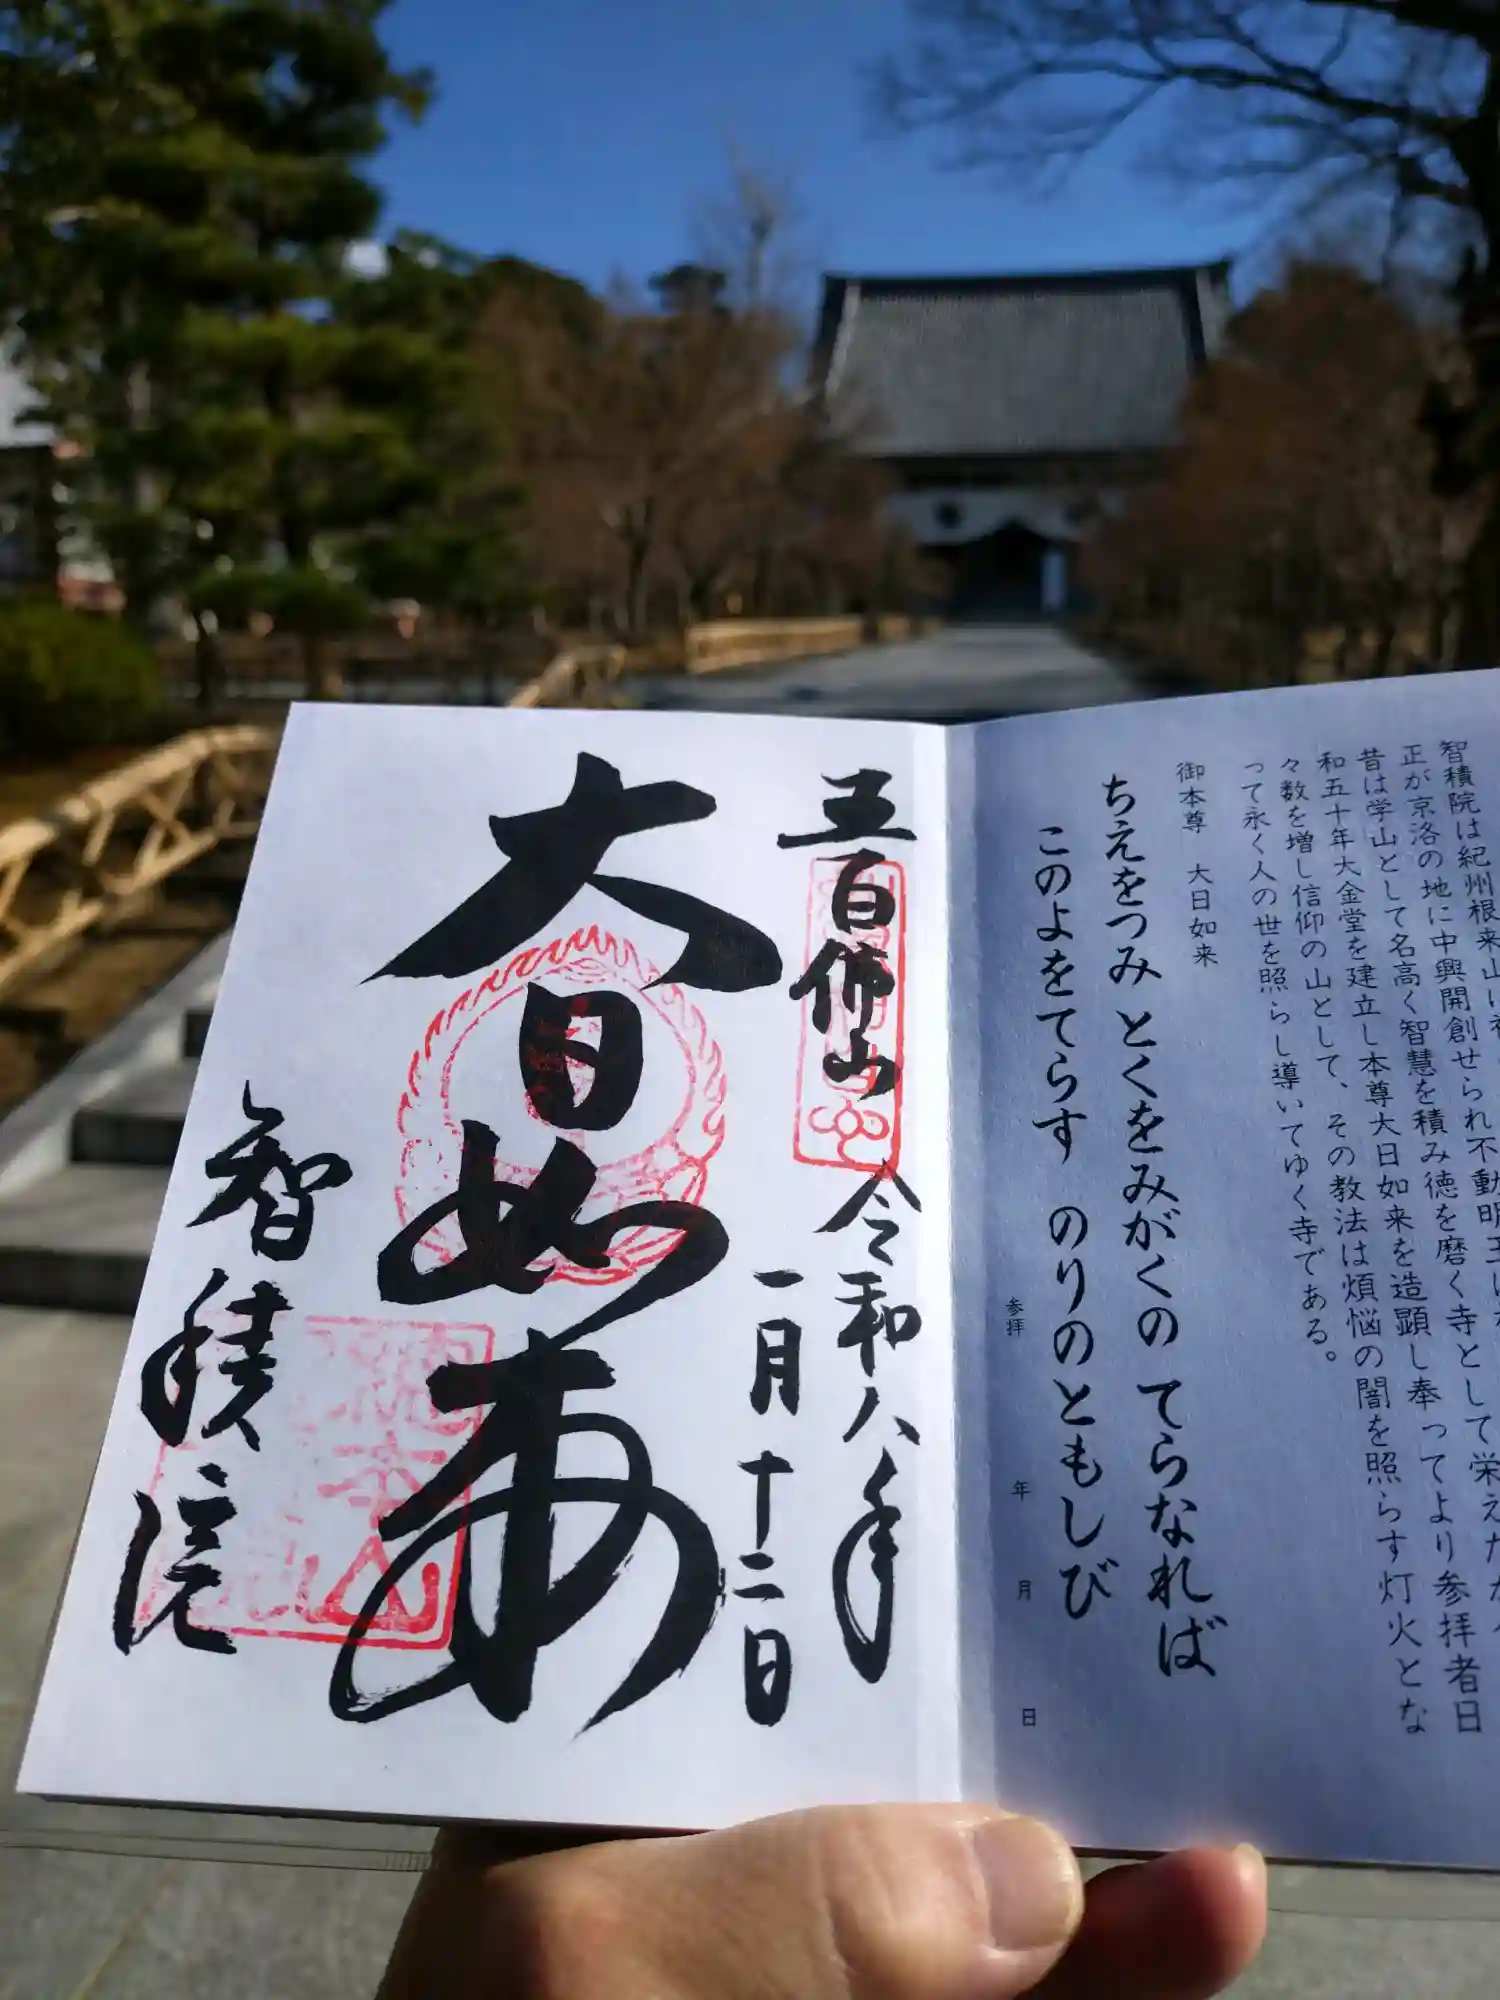 智積院は紀州根来山に
正が京洛の地に中興開創せられ不動明王
昔は学山として名高く智慧を積み徳を磨く寺として栄えたが
和五十年大金堂を建立し本尊大日如来を造顕し奉ってより参拝者日
々数を増し信仰の山として、その教法は煩悩の闇を照らす灯火とな
って永く人の世を照らし導いてゆく寺である。
御本尊 大日如来
ちえをつみ とくをみがくの てらなれば
このよをてらす のりのともしび
参拝 年 月 日
五百佛山 令和八年
一月十二日
大日如来
智積院